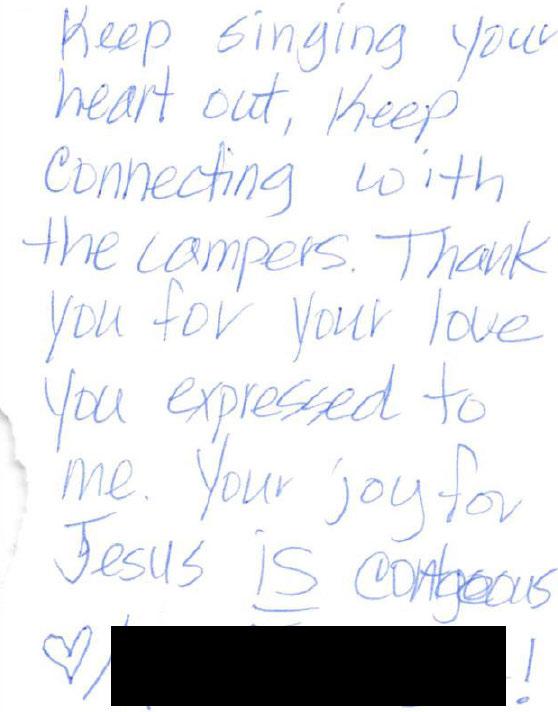 Keep singing your
heart out, Keep
Connecting with
the campers. Thank
you for your love
you expressed to
me. Your joy for
Jesus is contgeous
♡/ !